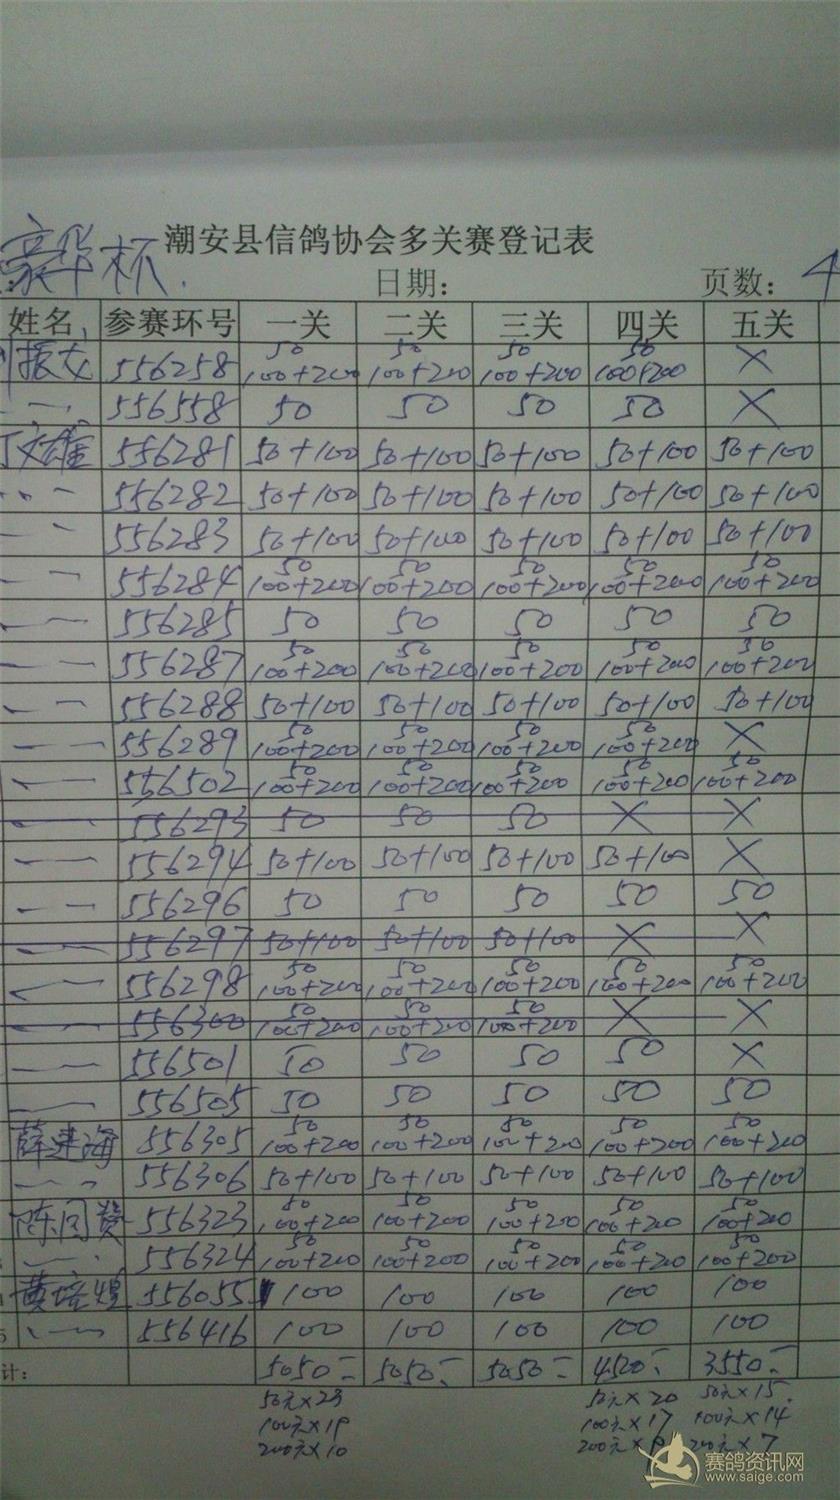 潮安县信鸽协会多关赛登记表
豪华杯.
日期: 页数: 4
姓名 参赛环号 一关 二关 三关 四关 五关
振文 556258 50 100+200 50 100+200 50 100+200 50 100+200 ×
〃 556558 50 50 50 50 ×
丁文雄 556281 50+100 50+100 50+100 50+100 50+100
〃 556282 50+100 50+100 50+100 50+100 50+100
〃 556283 50+100 50+100 50+100 50+100 50+100
〃 556284 50 100+200 50 100+200 50 100+200 50 100+200 50 100+200
〃 556285 50 50 50 50 50
〃 556287 50 100+200 50 100+200 50 100+200 50 100+200 50 100+200
〃 556288 50+100 50+100 50+100 50+100 50+100
〃 556289 50 100+200 50 100+200 50 100+200 50 100+200 ×
〃 556502 50 100+200 50 100+200 50 100+200 50 100+200 50 100+200
〃 556293 50 50 50 × ×
〃 556294 50+100 50+100 50+100 50+100 ×
〃 556296 50 50 50 50 50
〃 556297 50+100 50+100 50+100 × ×
〃 556298 50 100+200 50 100+200 50 100+200 50 100+200 50 100+200
〃 556300 50 100+200 50 100+200 50 100+200 × ×
〃 556501 50 50 50 50 ×
〃 556505 50 50 50 50 50
薛建海 556305 50 100+200 50 100+200 50 100+200 50 100+200 50 100+200
〃 556306 50+100 50+100 50+100 50+100 50+100
陈同赞 556323 50 100+200 50 100+200 50 100+200 50 100+200 50 100+200
〃 556324 50 100+200 50 100+200 50 100+200 50 100+200 50 100+200
黄培煌 556055 100 100 100 100 100
〃 556416 100 100 100 100 100
计: 5050 5050 5050 4500 3550
50元×23 50元×20 50元×15
100元×19 100元×17 100元×14
200元×10 200元× 200元×7
赛鸽资讯网
www.saige.com